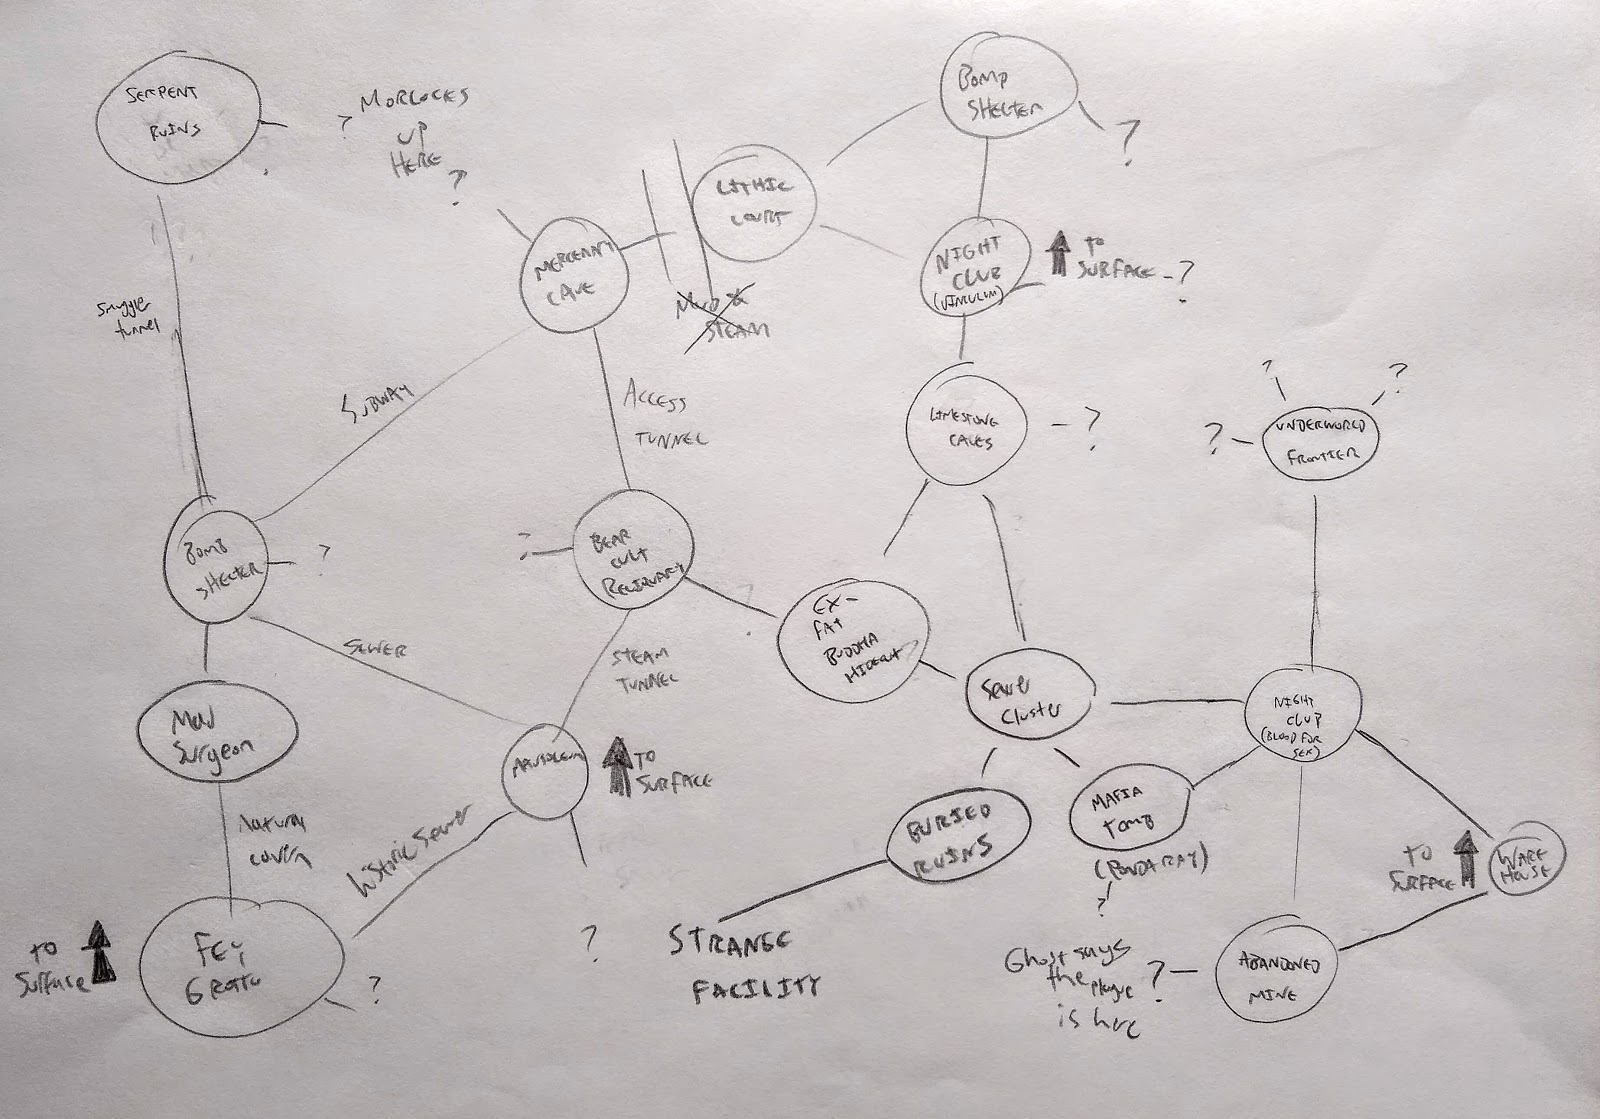 SERPENT
RUINS
?
?
MORLOCKS
UP
HERE
?
BOMB
SHELTER
?
LITHIC
COURT
MERCENARY
CAVE
MUD &
STEAM
NIGHT
CLUB
(VINCULUM)
TO
SURFACE
?
smuggler
tunnel
SUBWAY
ACCESS
TUNNEL
LIMESTONE
CAVES
?
?
?
?
UNDERWORLD
FRONTIER
BOMB
SHELTER
?
?
BEAR
CULT
RELIQUARY
?
EX-
FAT
BUDDHA
HIDEOUT
SEWER
STEAM
TUNNEL
Sewer
Cluster
NIGHT
CLUB
(BLOOD FOR
SEX)
Mad
Surgeon
MAUSOLEUM
TO
SURFACE
BURIED
RUINS
MAFIA
TOMB
?
TO
SURFACE
WARE
HOUSE
Natural
cavern
historic sewer
TO
Surface
FEY
GROTTO
?
?
STRANGE
FACILITY
Ghost says
the plague
is here
?
ABANDONED
MINE